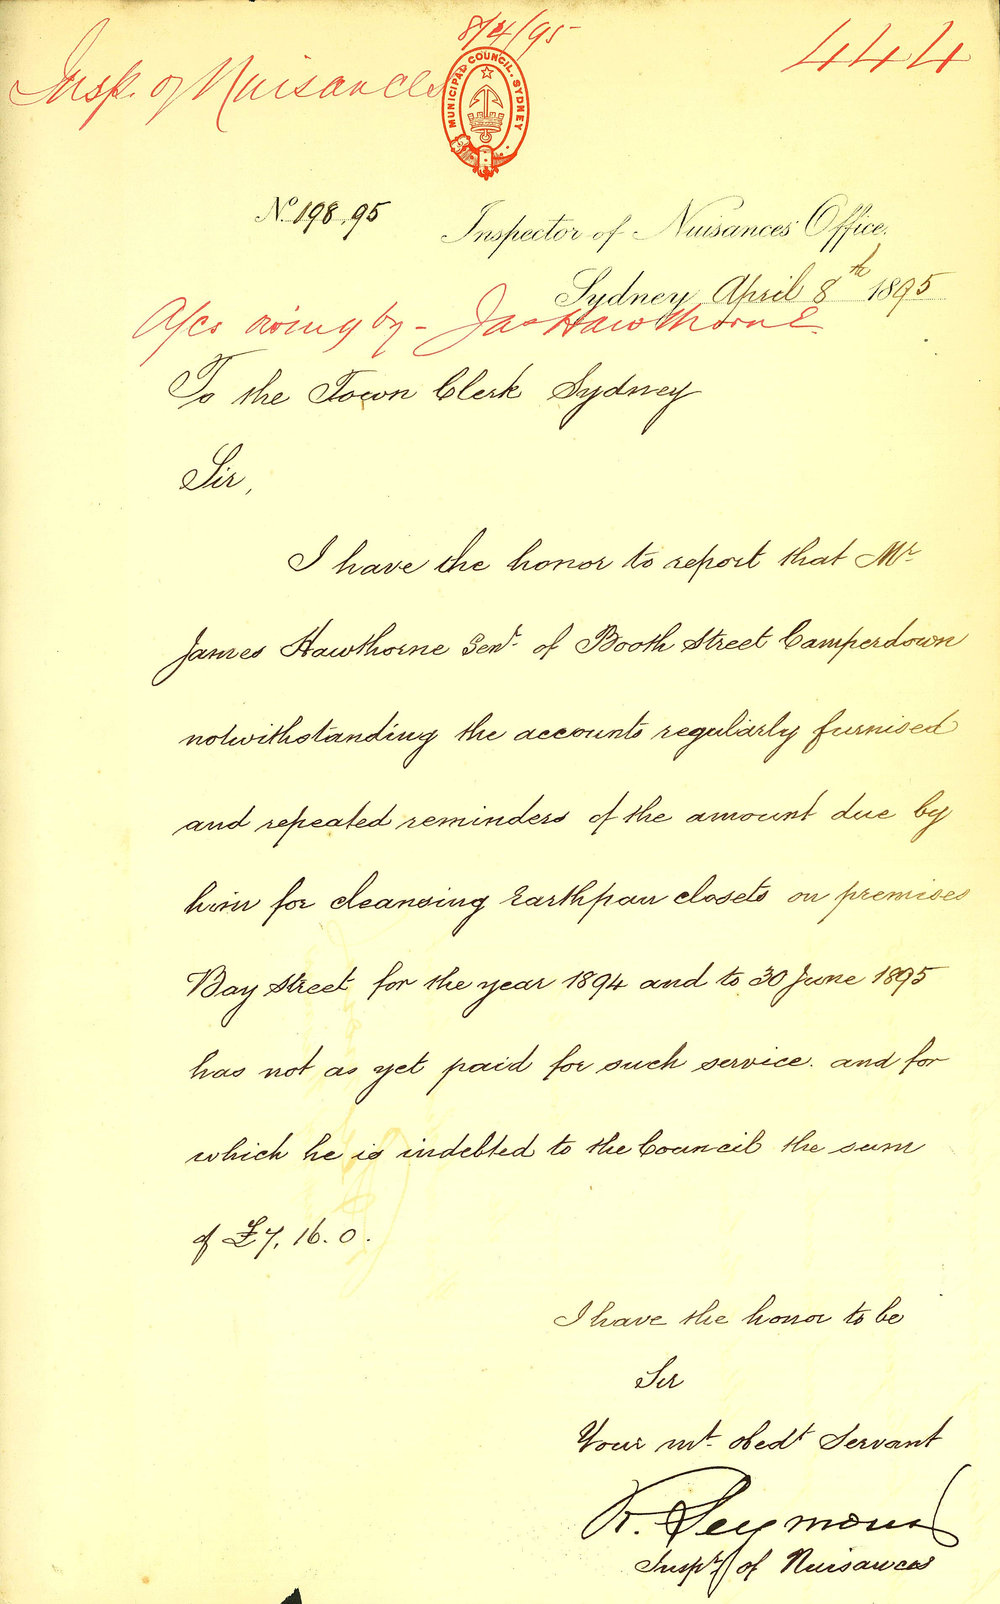 8/4/95
Insp. of Nuisances
444
MUNICIPAL COUNCIL. SYDNEY
No. 198.95
Inspector of Nuisances' Office.
Sydney April 8th 1895
A/cs owing by - Jas Hawthorne
To the Town Clerk Sydney
Sir,
I have the honor to report that Mr
James Hawthorne Senr. of Booth Street Camperdown
notwithstanding the accounts regularly furnised
and repeated reminders of the amount due by
him for cleansing Earthpan closets on premises
Bay Street for the year 1894 and to 30 June 1895
has not as yet paid for such service. and for
which he is indebted to the Council the sum
of £7. 16. 0.
I have the honor to be
Sir
Your mt. obedt Servant
R. Seymour
Inspr. of Nuisances